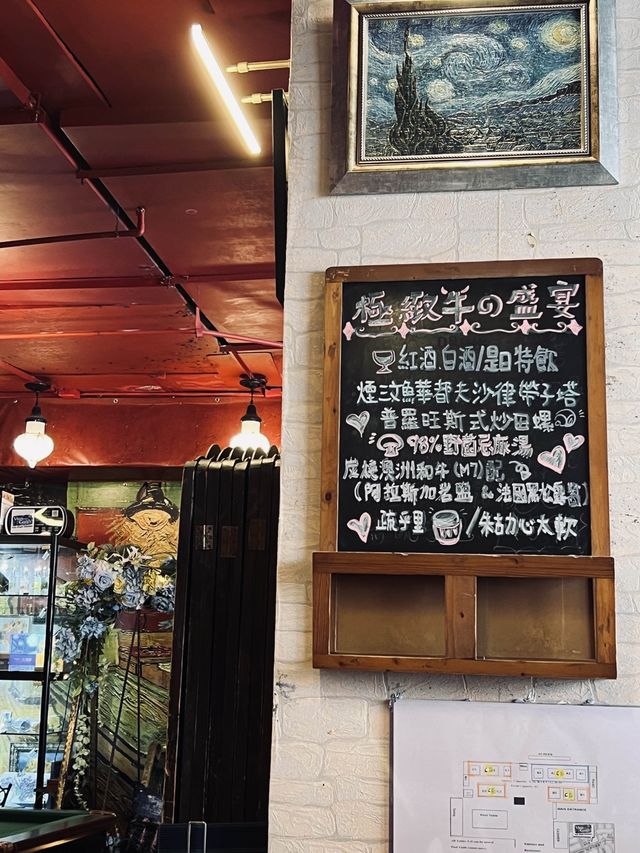 極緻羊の盛宴
紅酒.白酒/是日特飲
煙三文魚華都夫沙律帶子塔
普羅旺斯式炒田螺
98%野菌忌廉湯
炭燒澳洲和牛(M7)配
(阿拉斯加岩鹽 & 法國黑松露醬)
梳乎里 /朱古力心太軟
MAIN ENTRANCE
Pool Table